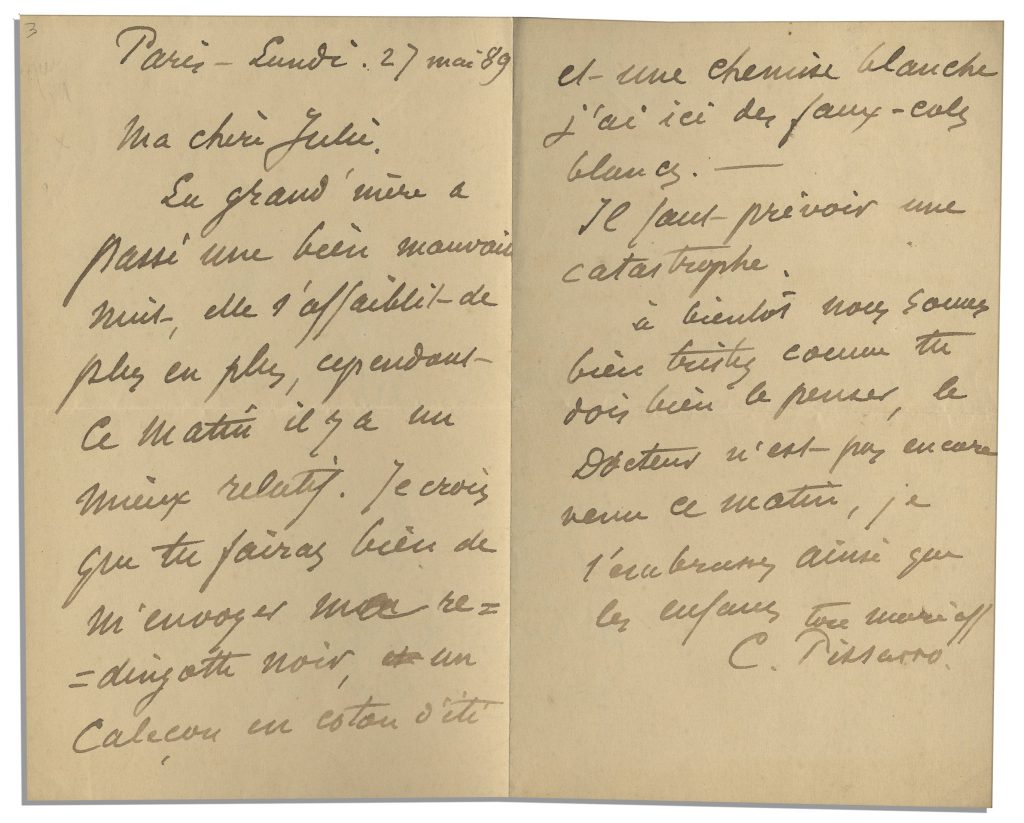 3
Paris – Lundi. 27 mai 89
Ma chéri Julie.
La grand'mère a
passé une bien mauvais
nuit, elle s'affaiblit de
plus en plus, cependant
ce matin il y a un
mieux relatif. Je crois
que tu fairas bien de
m'envoyer ma re=
=dingotte noir, et un
caleçon en coton d'été
et une chemise blanche
j'ai ici des faux-cols
blancs. —
Il faut prévoir une
catastrophe.
à bientôt nous sommes
bien tristes comme tu
dois bien le penser, le
Docteur n'est pas encore
venu ce matin, je
t'embrasses ainsi que
les enfants ton mari aff
C. Pissarro.